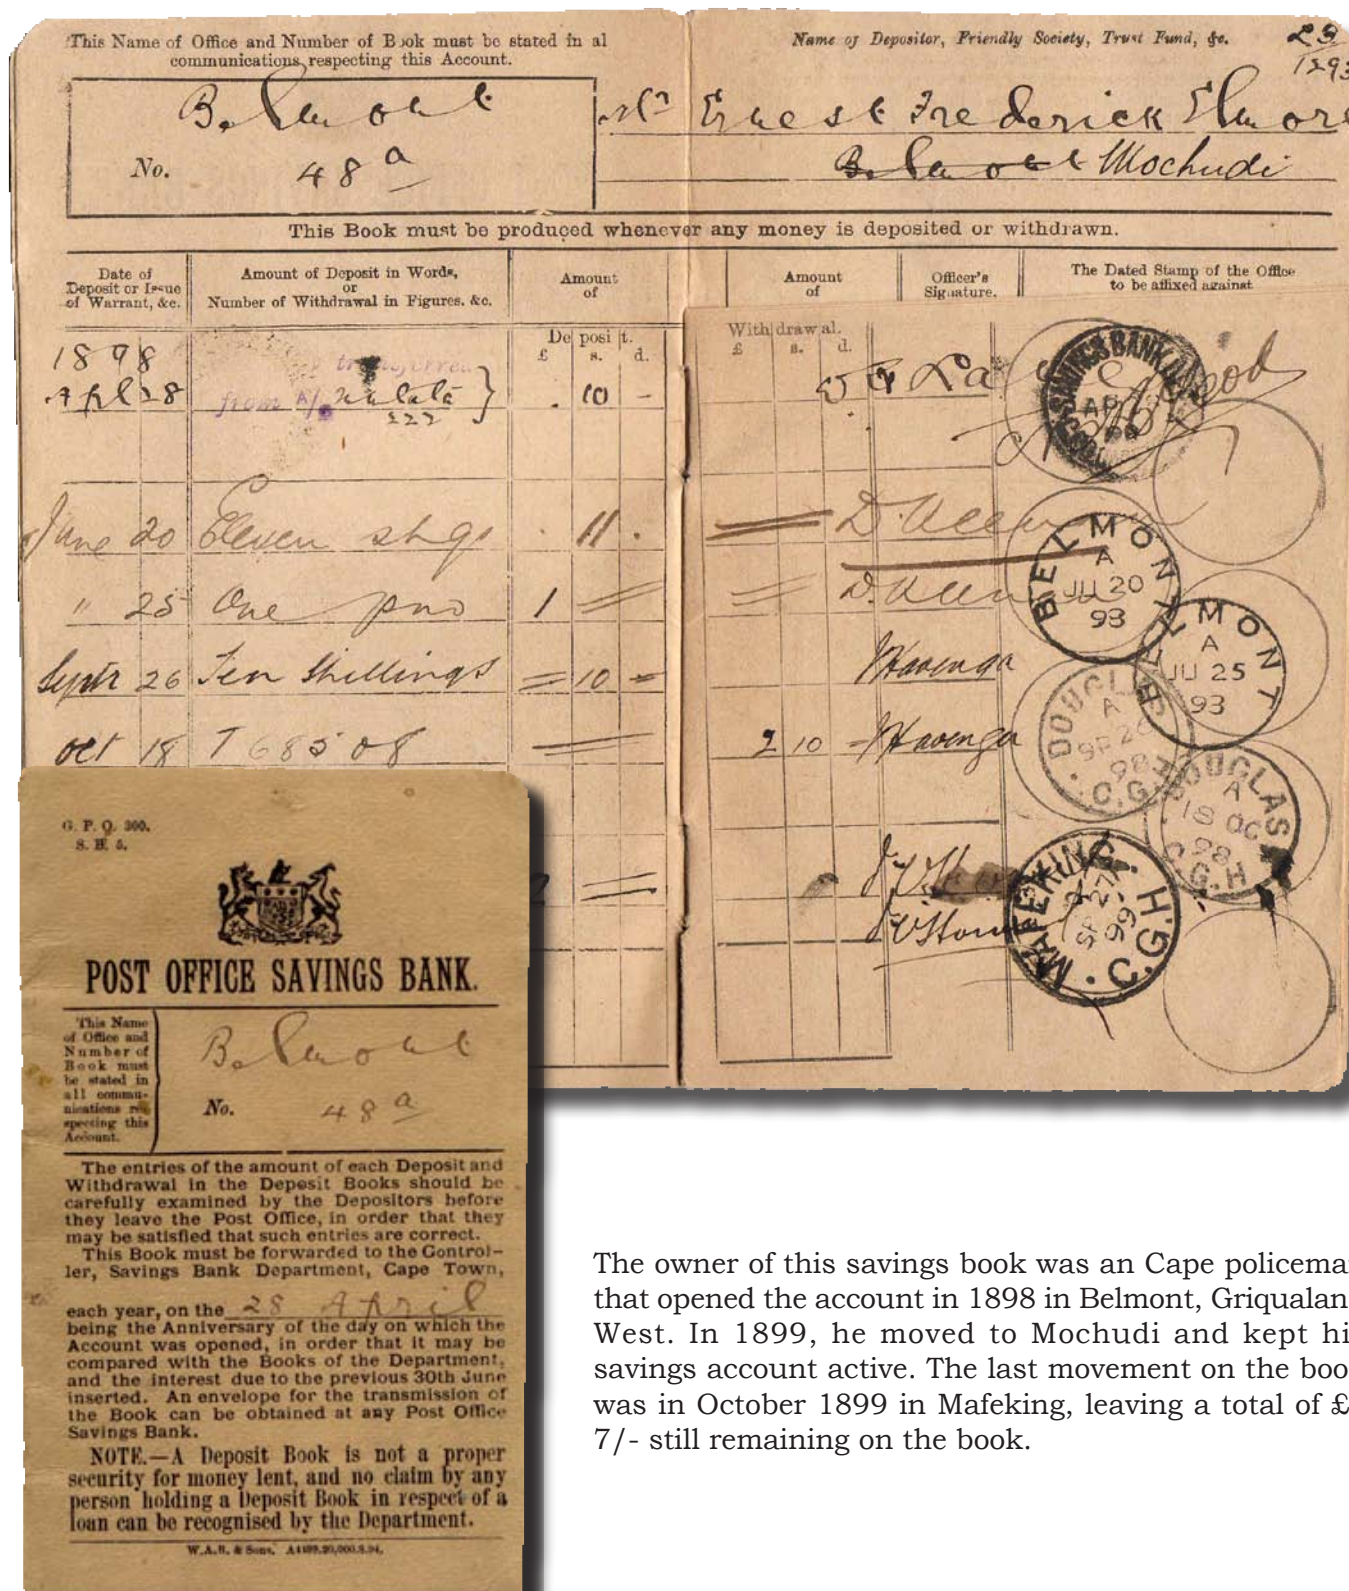 This Name of Office and Number of Book must be stated in al
communications respecting this Account.
Belmont
No. 48 a
Name of Depositor, Friendly Society, Trust Fund, &c.
Mr Ernest Frederick Elmore
Belmont Mochudi
This Book must be produced whenever any money is deposited or withdrawn.
Date of
Deposit or Issue
of Warrant, &c.
Amount of Deposit in Words,
or
Number of Withdrawal in Figures. &c.
Amount
of
Deposit.
£ s. d.
Amount
of
Withdrawal.
£ s. d.
Officer's
Signature.
The Dated Stamp of the Office
to be affixed against
1898
Apl 28 transferred
from A/c 222 } . 10 -
SAVINGS BANK
June 20 Eleven shgs . 11 .
BELMONT
A
JU 20
93
" 25 One pno 1
BELMONT
A
JU 25
93
Septr 26 Ten Shillings = 10 = Havenga
DOUGLAS
A
SP 26
98
C.G.H
oct 18 T 68508 2 10 - Havenga
DOUGLAS
A
18 OC
98
C.G.H
MAFEKING. C.G.H.
SP 27
99
G. P. O. 300.
S. B. 5.
POST OFFICE SAVINGS BANK.
This Name
of Office and
Number of
Book must
be stated in
all commu-
nications re-
specting this
Account.
Belmont
No. 48 a
The entries of the amount of each Deposit and
Withdrawal in the Deposit Books should be
carefully examined by the Depositors before
they leave the Post Office, in order that they
may be satisfied that such entries are correct.
This Book must be forwarded to the Control-
ler, Savings Bank Department, Cape Town,
each year, on the 28 April
being the Anniversary of the day on which the
Account was opened, in order that it may be
compared with the Books of the Department,
and the interest due to the previous 30th June
inserted. An envelope for the transmission of
the Book can be obtained at any Post Office
Savings Bank.
NOTE.—A Deposit Book is not a proper
security for money lent, and no claim by any
person holding a Deposit Book in respect of a
loan can be recognised by the Department.
W.A.R. & Sons.
The owner of this savings book was an Cape policema
that opened the account in 1898 in Belmont, Griqualan
West. In 1899, he moved to Mochudi and kept hi
savings account active. The last movement on the boo
was in October 1899 in Mafeking, leaving a total of £
7/- still remaining on the book.